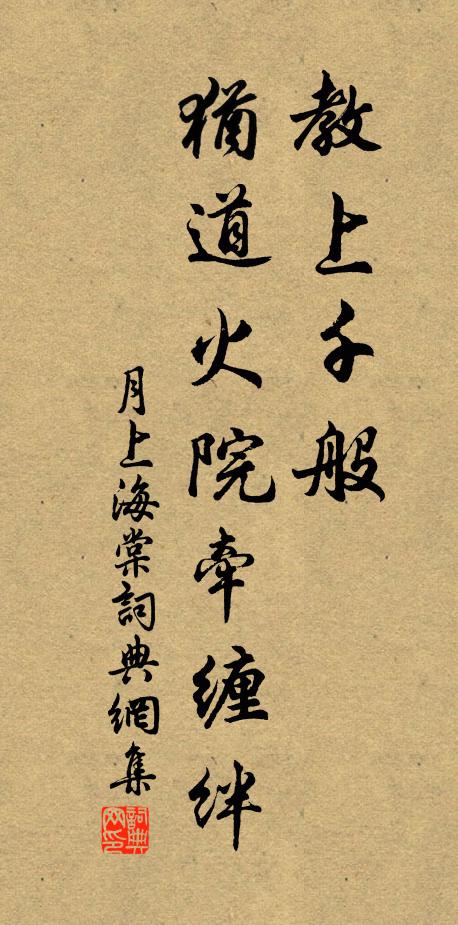 教上千般
猶道火院牽纏絆
月上海棠詞典網集
詞典網印